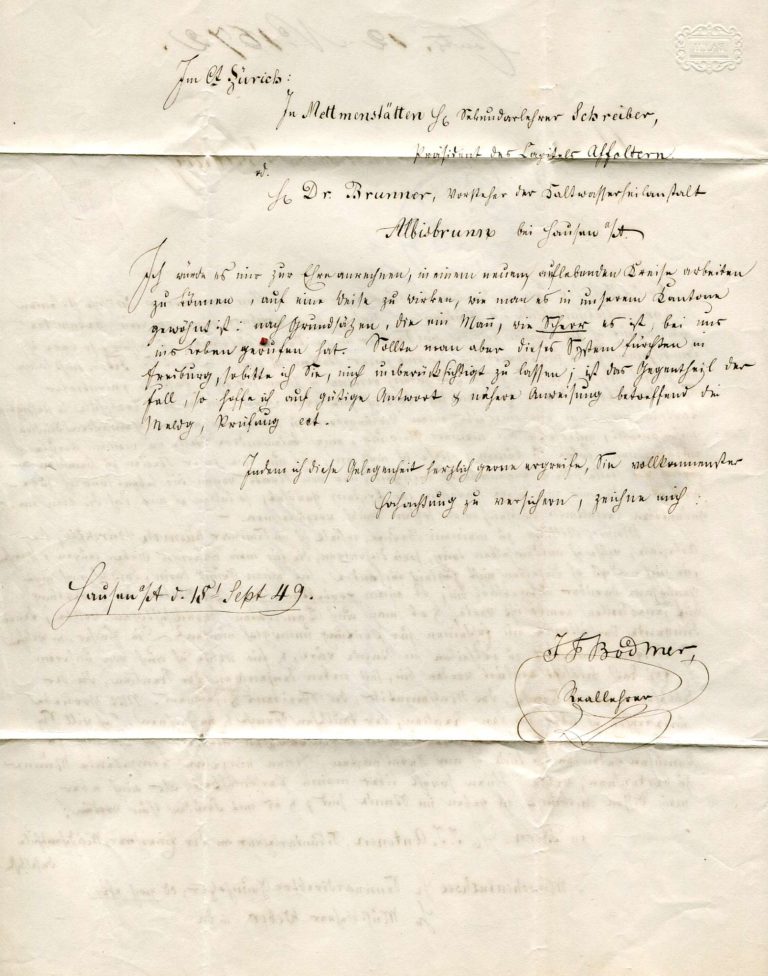 Im Ct Zürich:
In Mettmenstätten H. Sekundarlehrer Schreiber,
Präsident des Capitels Affoltern
od.
H. Dr. Brunner, Vorsteher der Kaltwasserheilanstalt
Albisbrunn bei Hausen a/A.
Ich würde es mir zur Ehre anrechnen, in einem neuen, auflebenden Kreise arbeiten
zu können, auf eine Weise zu wirken, wie man es in unserem Kantone
gewöhnt ist: nach Grundsätzen, die ein Mann, wie Scherr es ist, bei uns
ins Leben gerufen hat. Sollte man aber dieses System fürchten in
Freiburg, so bitte ich Sie, mich unberücksichtigt zu lassen; ist das Gegentheil der
Fall, so hoffe ich auf gütige Antwort & nähere Anweisung betreffend die
Meldg, Prüfung ect.
Indem ich diese Gelegenheit herzlich gerne ergreife, Sie vollkommenster
Hochachtung zu versichern, zeichne mich:
Hausen a/A d. 18t Sept 49.
J F Bodmer,
Reallehrer